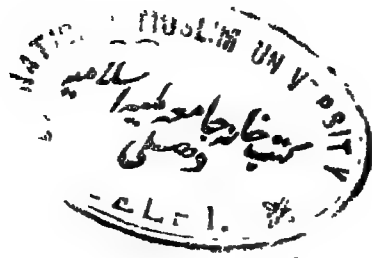 NATIONAL MUSLIM UNIVERSITY
کتب خانہ جامعہ ملیہ اسلامیہ
دہلی
DELHI.